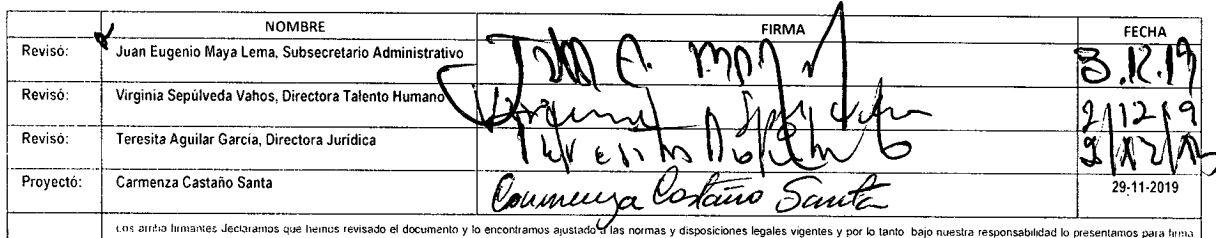 NOMBRE FIRMA FECHA
Revisó: Juan Eugenio Maya Lema, Subsecretario Administrativo 3.12.19
Revisó: Virginia Sepúlveda Vahos, Directora Talento Humano 2/12/19
Revisó: Teresita Aguilar García, Directora Jurídica
Proyectó: Carmenza Castaño Santa Carmenza Castaño Santa 29-11-2019
Los arriba firmantes declaramos que hemos revisado el documento y lo encontramos ajustado a las normas y disposiciones legales vigentes y por lo tanto bajo nuestra responsabilidad lo presentamos para firma